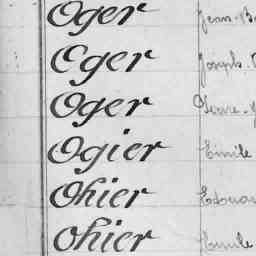 Oger Jean-
Eger Joseph.
Oger
Ogier Emile
Ohier Edoua
Ohier Emile